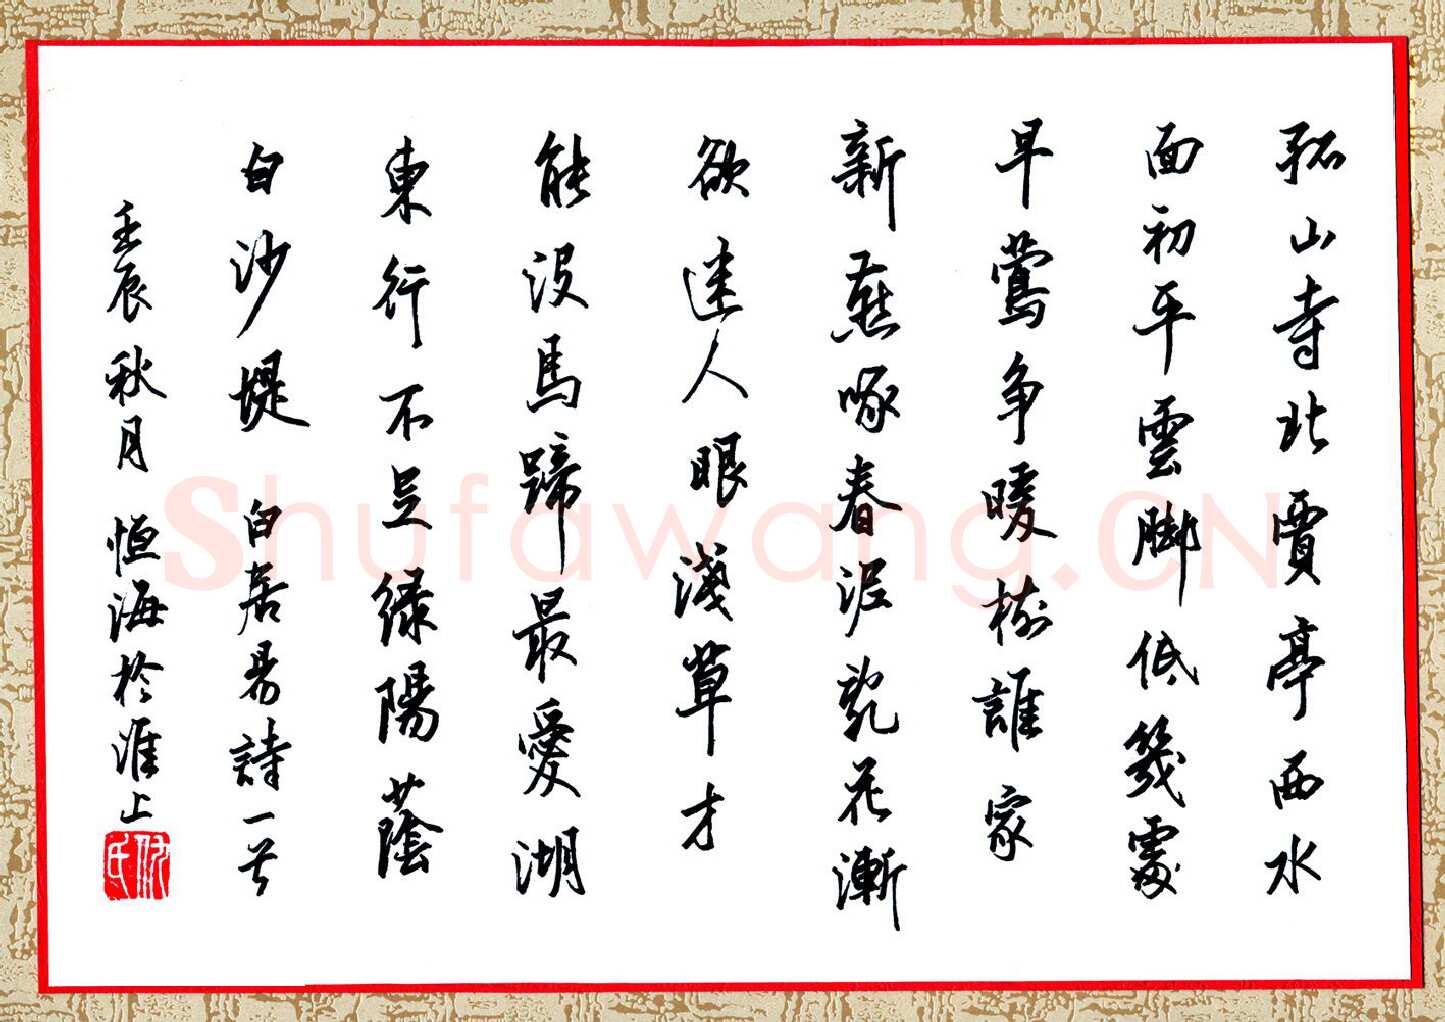 孤山寺北賈亭西水
面初平雲脚低幾處
早鶯争暖樹誰家
新燕啄春泥亂花漸
欲迷人眼淺草才
能没馬蹄最愛湖
東行不足綠陽蔭
白沙堤 白居易詩一首
壬辰秋月 恒海於淮上
Shufawang.CN